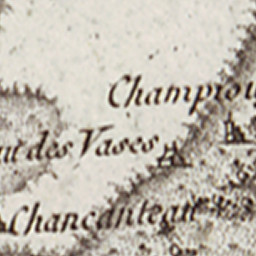 Champrou
des Vases
Chancanteau